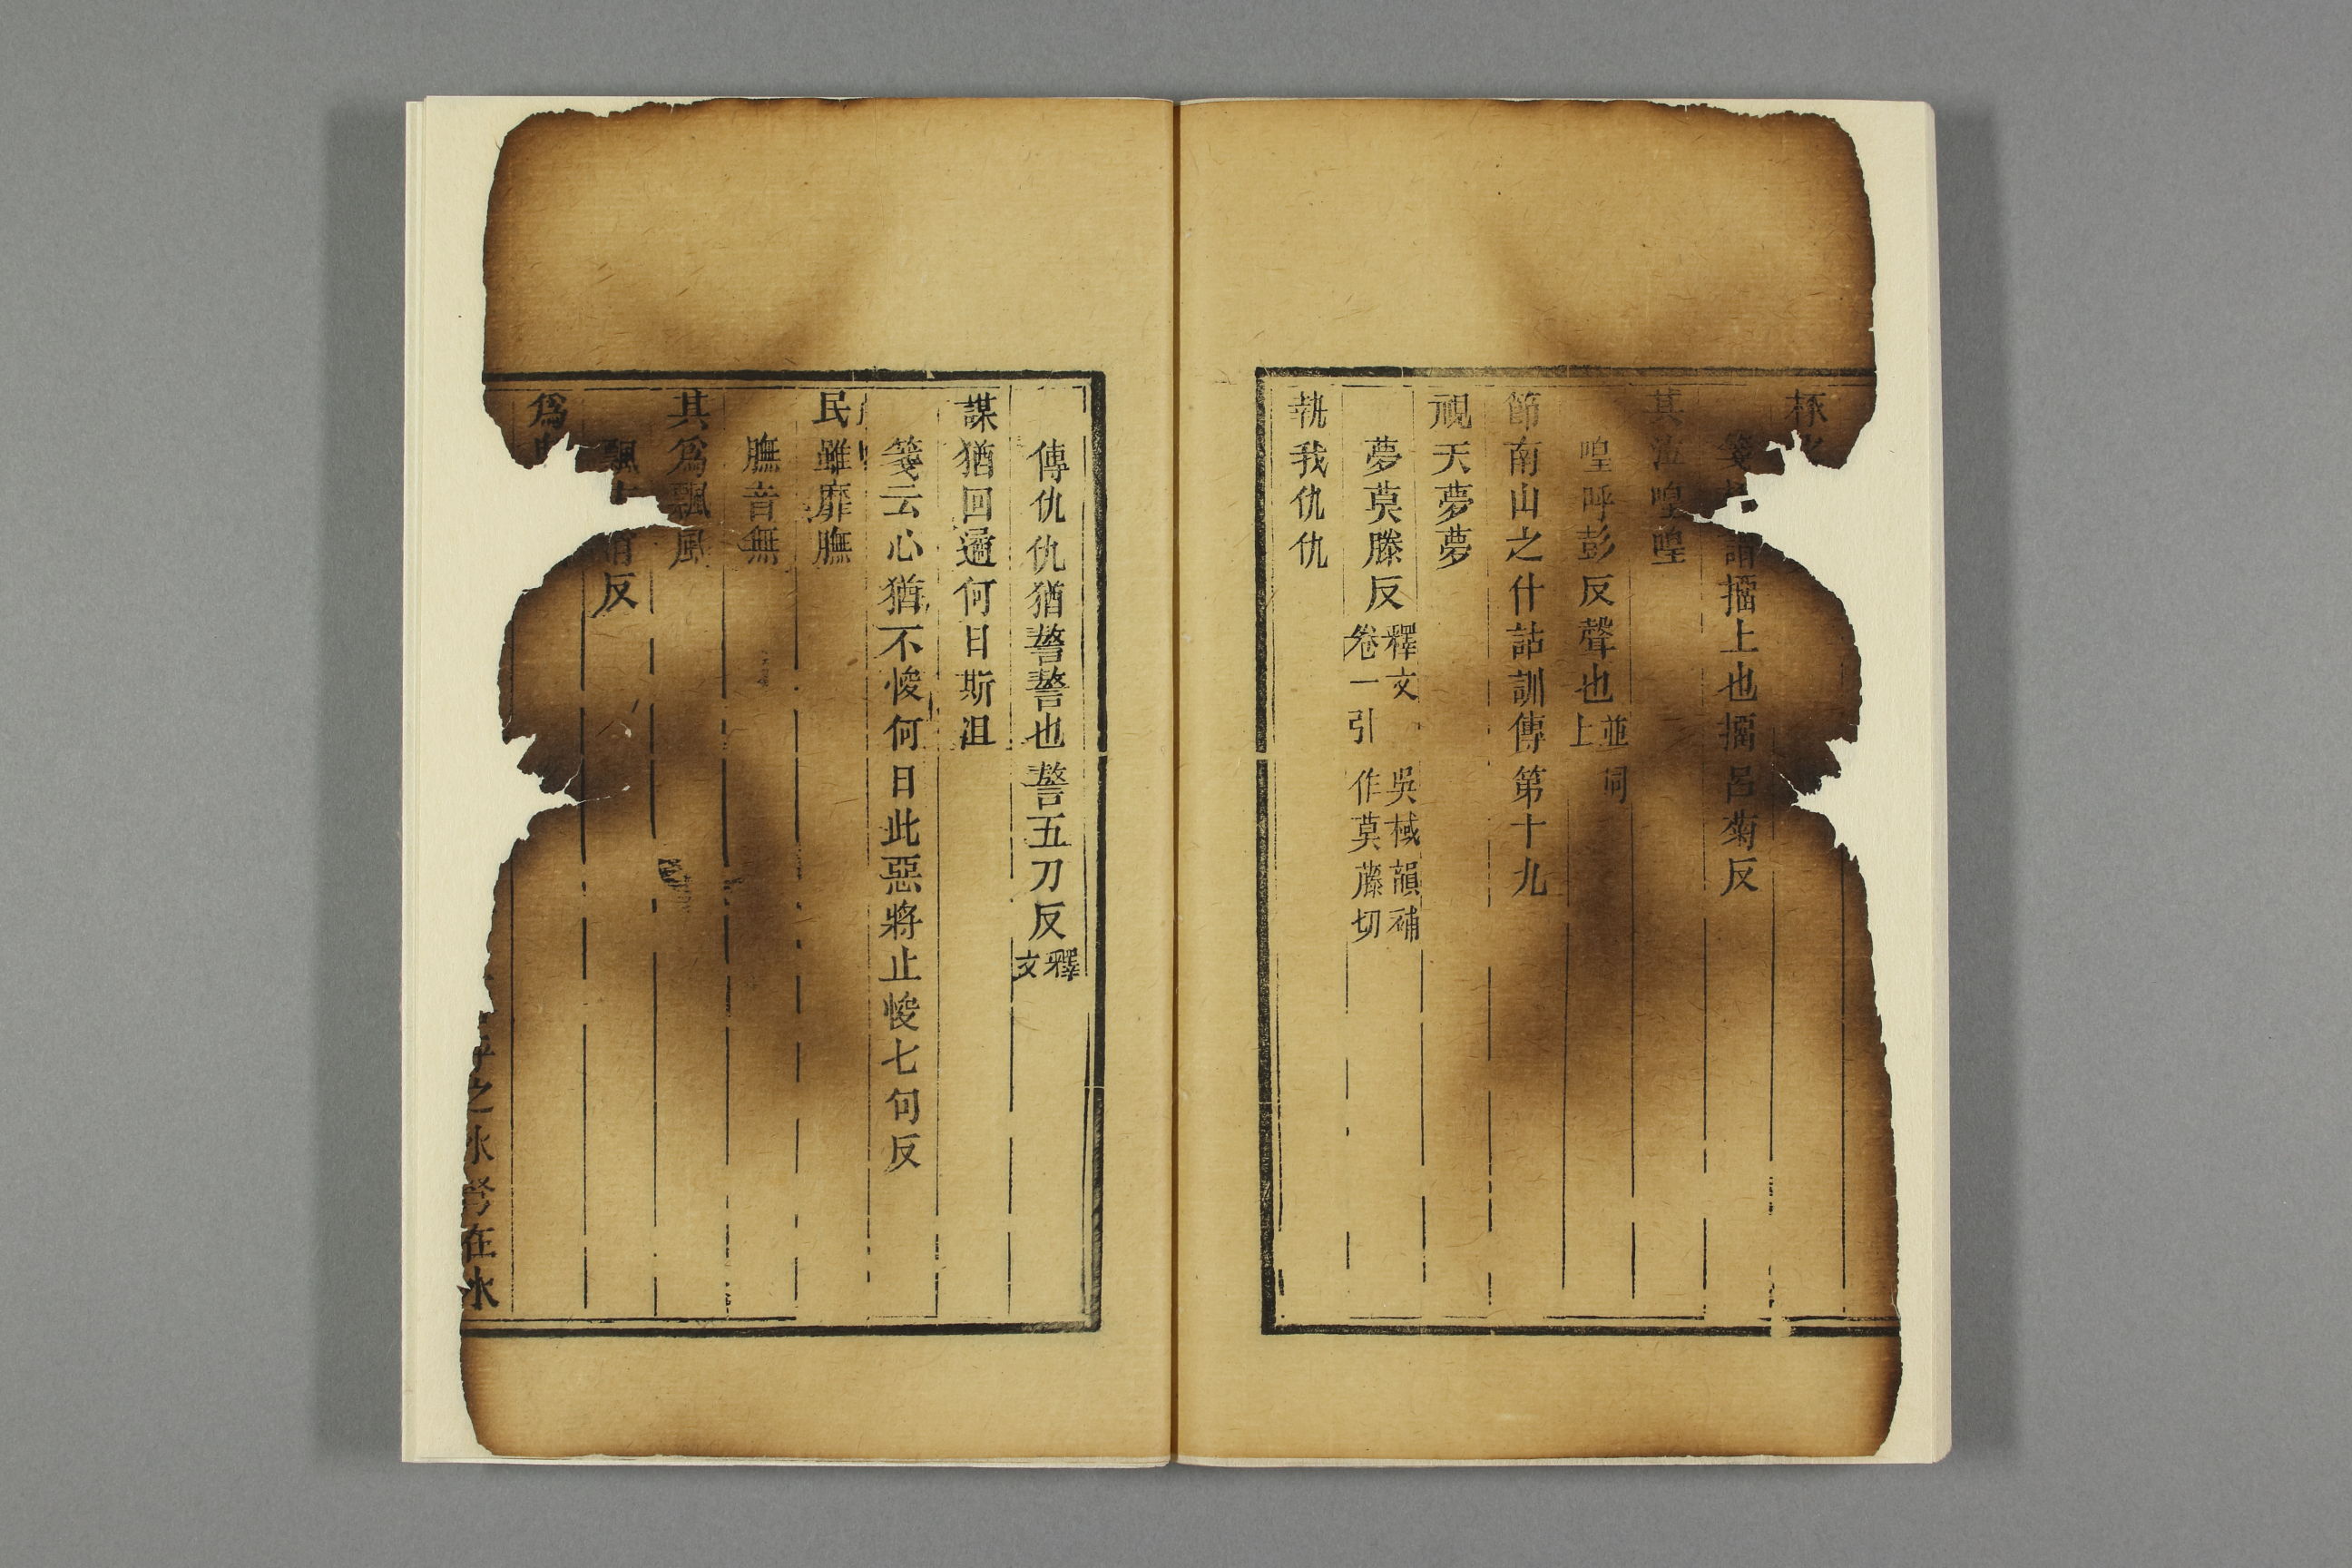 椓
箋 謂擂上也擂呂菊反
其泣喤喤
喤呼彭反聲也並同上
節南山之什詁訓傳第十九
視天夢夢
夢莫滕反釋文 吳棫韻補卷一引 作莫藤切
執我仇仇
傳仇仇猶謷謷也謷五刀反釋文
謀猶回遹何日斯沮
箋云心猶不悛何日此惡將止悛七旬反
民雖靡膴
膴音無
其為飄風
飄 反
為
之水 在水